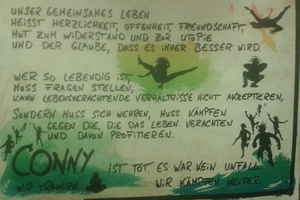 UNSER GEMEINSAMES LEBEN
HEISST HERZLICHKEIT, OFFENHEIT, FREUNDSCHAFT,
MUT ZUM WIDERSTAND UND ZUR UTOPIE
UND DER GLAUBE, DASS ES IMMER BESSER WIRD.
WER SO LEBENDIG IST,
MUSS FRAGEN STELLEN,
KANN LEBENSVERACHTENDE VERHÄLTNISSE NICHT AKZEPTIEREN,
SONDERN MUSS SICH WEHREN, MUSS KÄMPFEN
GEGEN DIE, DIE DAS LEBEN VERACHTEN
UND DAVON PROFITIEREN.
CONNY IST TOT. ES WAR KEIN UNFALL.
WIR TRAUERN. WIR KÄMPFEN WEITER.